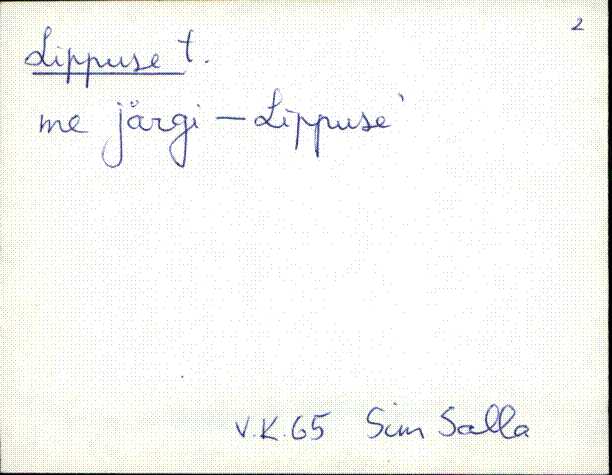 2
Lippuse t.
me järgi – Lippuse'
V.K.65 Sim Salla